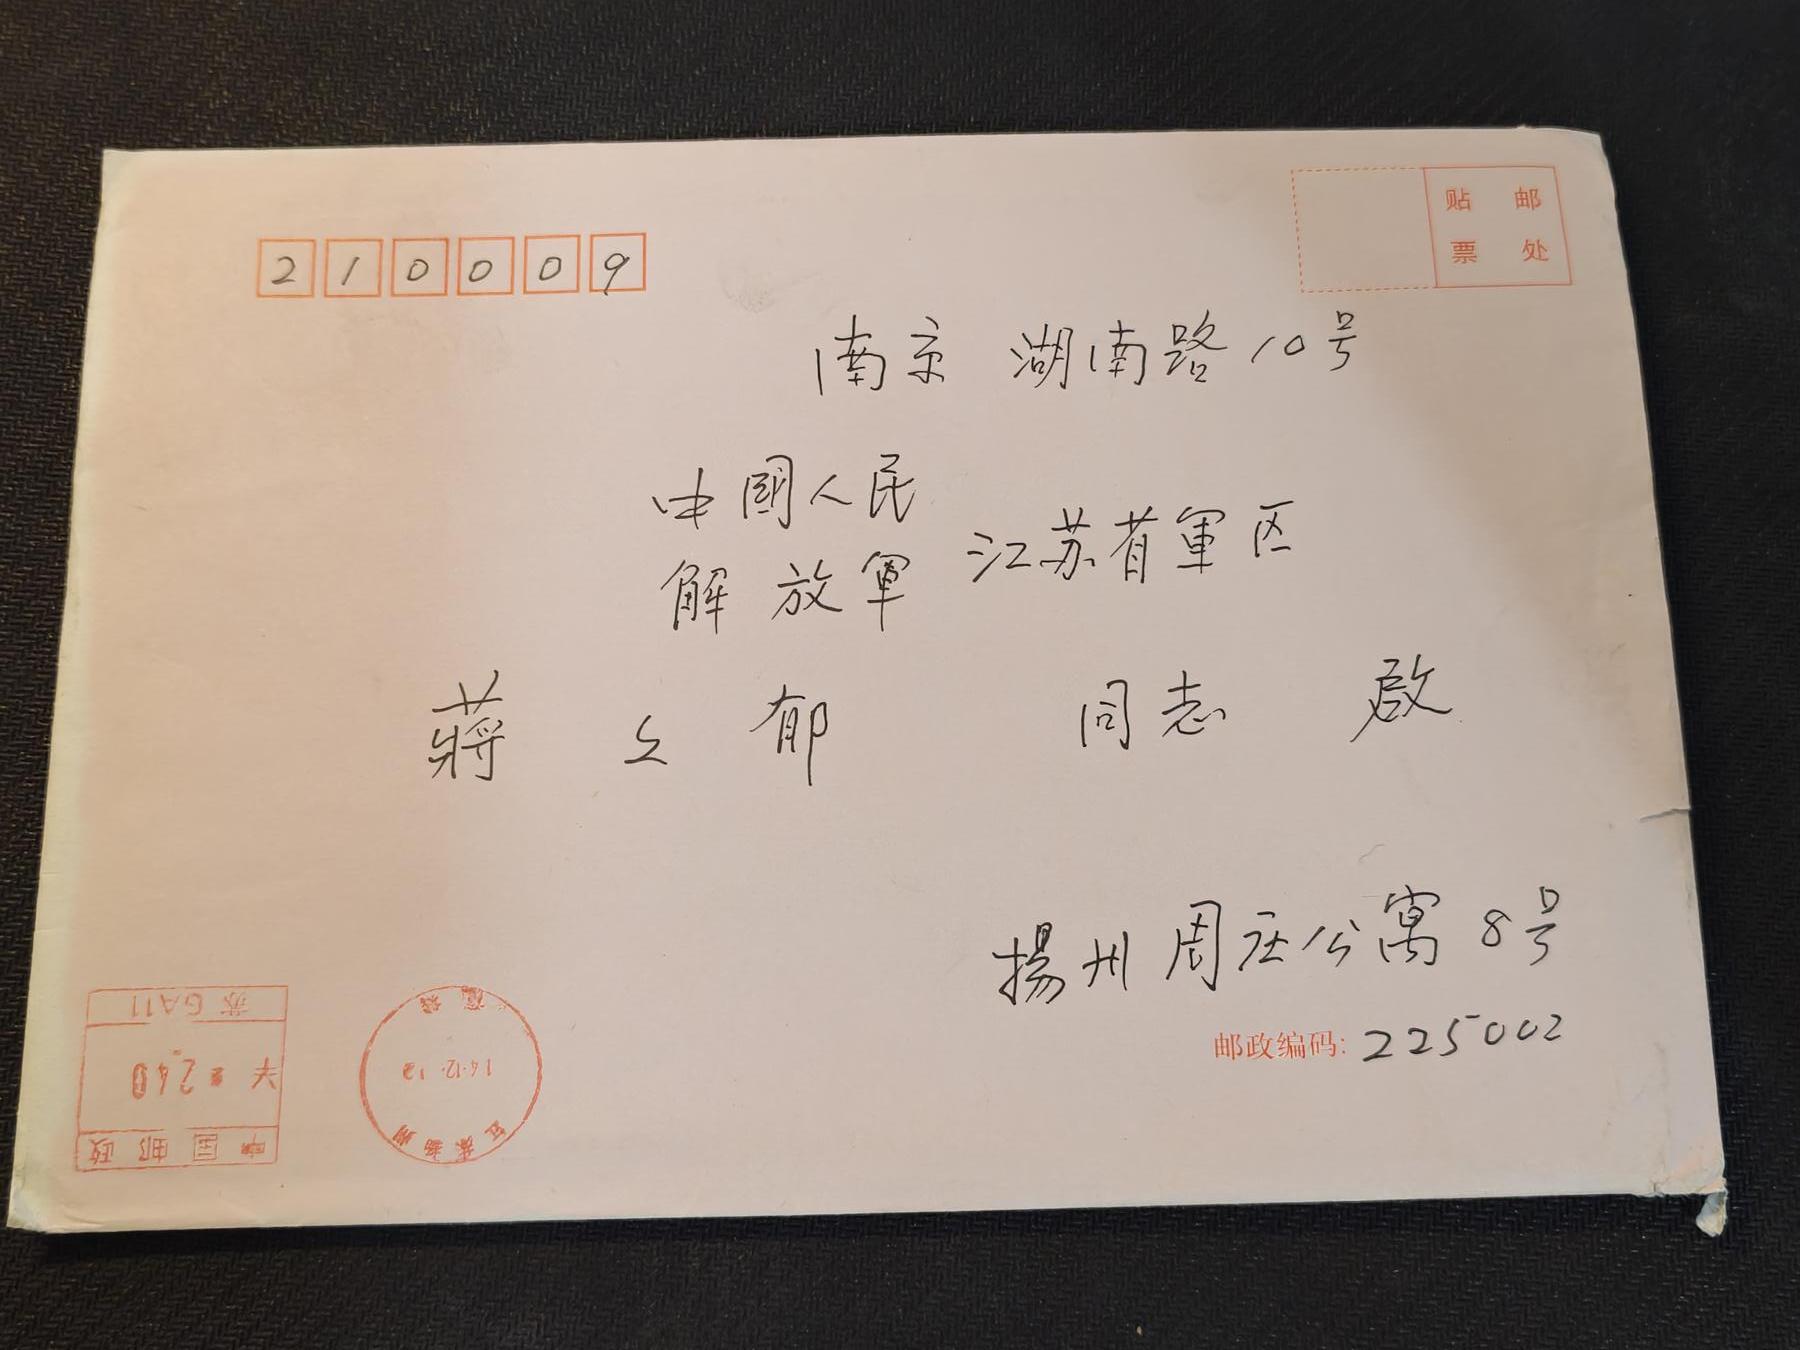 210009
贴 邮
票 处
南京 湖南路10号
中國人民
解放軍 江苏省軍区
蔣 之 郁 同志 啟
揚州 周庄公寓 8号
邮政编码: 225002
苏 GA11
中国邮政
江苏扬州